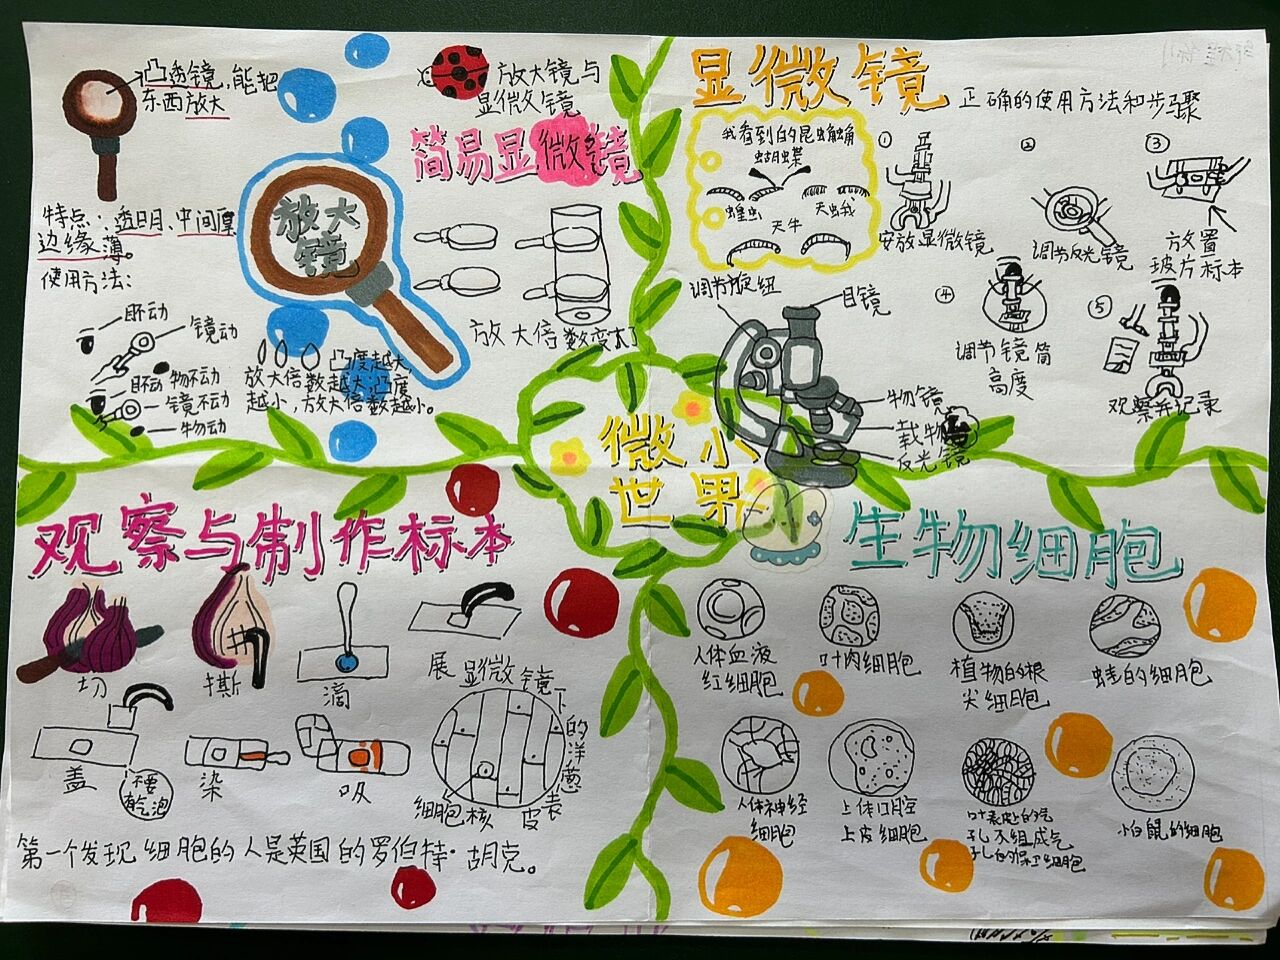 凸透镜,能把
东西放大
特点:透明、中间厚
边缘薄。
使用方法:
眼动
镜动
物不动
眼不动
镜不动
物动
放大
镜
凸度越大,
放大倍数越大;凸度
越小,放大倍数越小。
放大镜与
显微镜
简易显微镜
放大倍数变大了
显微镜
正确的使用方法和步骤
我看到的昆虫触角
蝴蝶
蝗虫
天虫我
天牛
①
安放显微镜
②
调节反光镜
③
放置
玻片标本
④
调节镜筒
高度
⑤
观察并记录
调节旋纽
目镜
物镜
载物
反光镜
微小
世界
观察与制作标本
切
撕
滴
展
盖
不要
乾泡
染
吸
显微镜下的洋葱表皮
细胞核
第一个发现细胞的人是英国的罗伯特·胡克。
生物细胞
人体血液
红细胞
叶肉细胞
植物的根
尖细胞
蛙的细胞
人体神经
细胞
上体口腔
上皮细胞
叶表皮上的气
孔不组成气
孔的保卫细胞
小白鼠的细胞